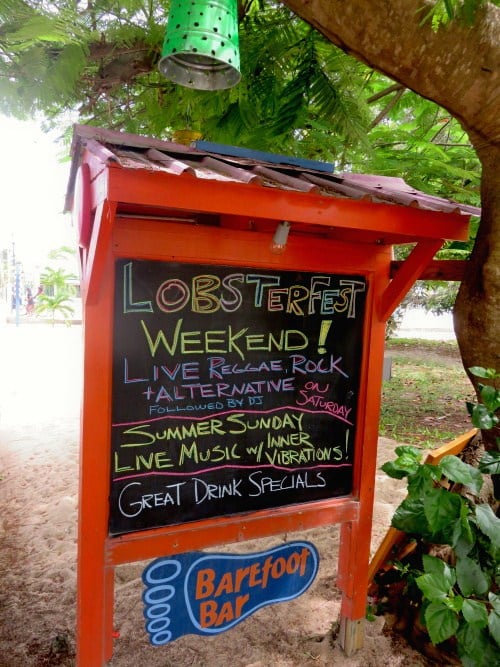 LOBSTERFEST
WEEKEND!
LIVE REGGAE, ROCK
+ ALTERNATIVE ON
FOLLOWED BY DJ SATURDAY
SUMMER SUNDAY
LIVE MUSIC W/ INNER
VIBRATIONS!
GREAT DRINK SPECIALS
BAREFOOT
BAR